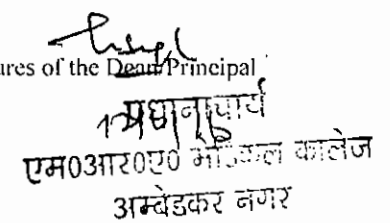 ures of the Dean/Principal
प्रधानाचार्य
एम0आर0ए0 मेडिकल कालेज
अम्बेडकर नगर